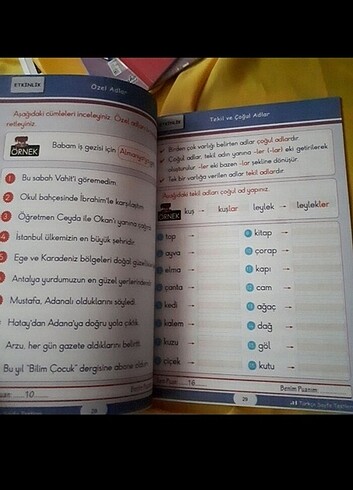 ETKİNLİK
Özel Adlar
Aşağıdaki cümleleri inceleyiniz. Özel adları
ÖRNEK
Babam iş gezisi için
Bu sabah Vahit'i göremedim.
Okul bahçesinde İbrahim'le karşılaştım
Öğretmen Ceyda ile Okan'ı yanına çağırdı
İstanbul ülkemizin en büyük şehridir.
Ege ve Karadeniz bölgeleri doğal
Antalya yurdumuzun en güzel yerlerinden
Mustafa, Adanalı olduklarını söyledi.
Hatay'dan Adana'ya doğru yola çıktık.
Arzu, her gün gazete aldıklarını belirtti
Bu yıl "Bilim Çocuk" dergisine abone oldum
10
Benim
20
ETKİNLİK
Tekil ve Çoğul Adlar
Birden çok varlığı belirten adlar çoğul adlardır.
Çoğul adlar, tekil adın yanına -ler (-lar) eki getirilerek
oluşturulur. -ler eki bazen -lar şekline dönüşür.
Tek bir varlığa verilen adlar tekil adlardır.
Aşağıdaki tekil adları çoğul ad yapınız.
ÖRNEK
kuş → kuşlar leylek → leylekler
top → kitap →
ayva → çorap →
elma → kapı →
çanta → cam →
kedi → ağaç →
kalem → dağ →
kuzu → göl →
çiçek → kutu →
Tam Puan: 10 Benim Puanım:
20